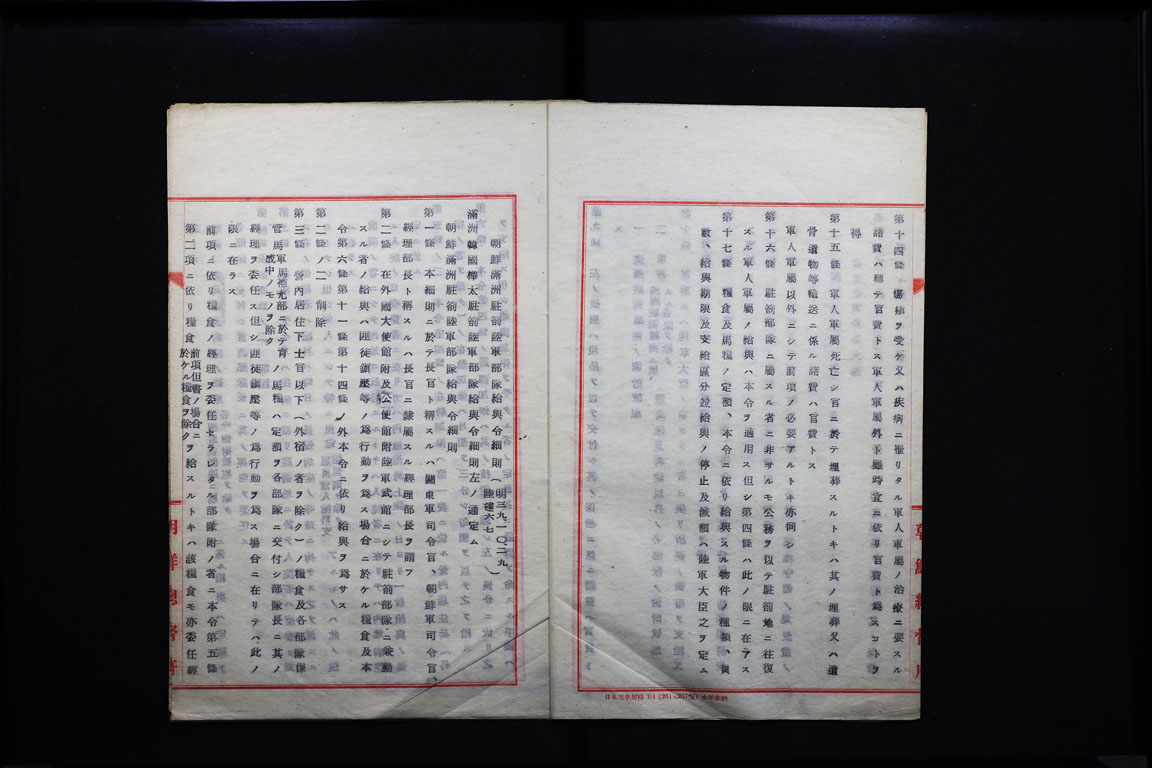 第十四條 傷痍ヲ受ケ又ハ疾病ニ罹リタル軍人軍屬ノ治療ニ要スル
諸費ハ總テ官費トス軍人軍屬外ト雖時宜ニ依リ官費ト爲スコトヲ
得
第十五條 軍人軍屬死亡シ官ニ於テ埋葬スルトキハ其ノ埋葬又ハ遺
骨遺物等輸送ニ係ル諸費ハ官費トス
軍人軍屬以外ニシテ前項ノ必要アルトキ亦同シ
第十六條 駐箚部隊ニ屬スル者ニ非サルモ公務ヲ以テ駐箚地ニ往復
スル軍人軍屬ノ給與ハ本令ヲ適用ス但シ第四條ハ此ノ限ニ在アス
第十七條 糧食及馬糧ノ定額、本令ニ依リ給與スル物件ノ種類、員
數、給與期限及支給區分竝給與ノ停止及減額ハ陸軍大臣之ヲ定ム
日本標準規格 B4
朝鮮總督府
朝鮮滿洲駐箚陸軍部隊給與令細則（明三九、一〇、二九 陸達六七）
滿洲韓國樺太駐箚陸軍部隊給與令細則左ノ通定ム
朝鮮滿洲駐箚陸軍部隊給與令細則
第一條 本細則ニ於テ長官ト稱スルハ關東軍司令官、朝鮮軍司令官、
經理部長ト稱スルハ長官ニ隷屬スル經理部長ヲ謂フ
第二條 在外國大使館附及公使館附陸軍武館ニシテ駐箚部隊ニ兼勤
スル者ノ給與ハ匪徒鎭壓等ノ爲行動ヲ爲ス場合ニ於ケル糧食及本
令第六條第十一條第十四條ノ外本令ニ依リ給與ヲ爲サス
第二條ノ二 削除
第三條 營内居住下士官以下（外宿ノ者ヲ除ク）ノ糧食及各部隊保
管馬軍馬補充部ニ於テ育成中ノモノヲ除クノ馬糧ハ定額ヲ各部隊ニ交付シ部隊長ニ其ノ
經理ヲ委任ス但シ匪徒鎭壓等ノ爲行動ヲ爲ス場合ニ在リテハ此ノ
限ニ在ラス
前項ニ依リ糧食ノ經理ヲ委任セラレタル部隊附ノ者ニ本令第五條
第二項ニ依リ糧食前項但書ノ場合ニ於ケル糧食ヲ除クヲ給スルトキハ該糧食モ亦委任經
朝鮮總督府